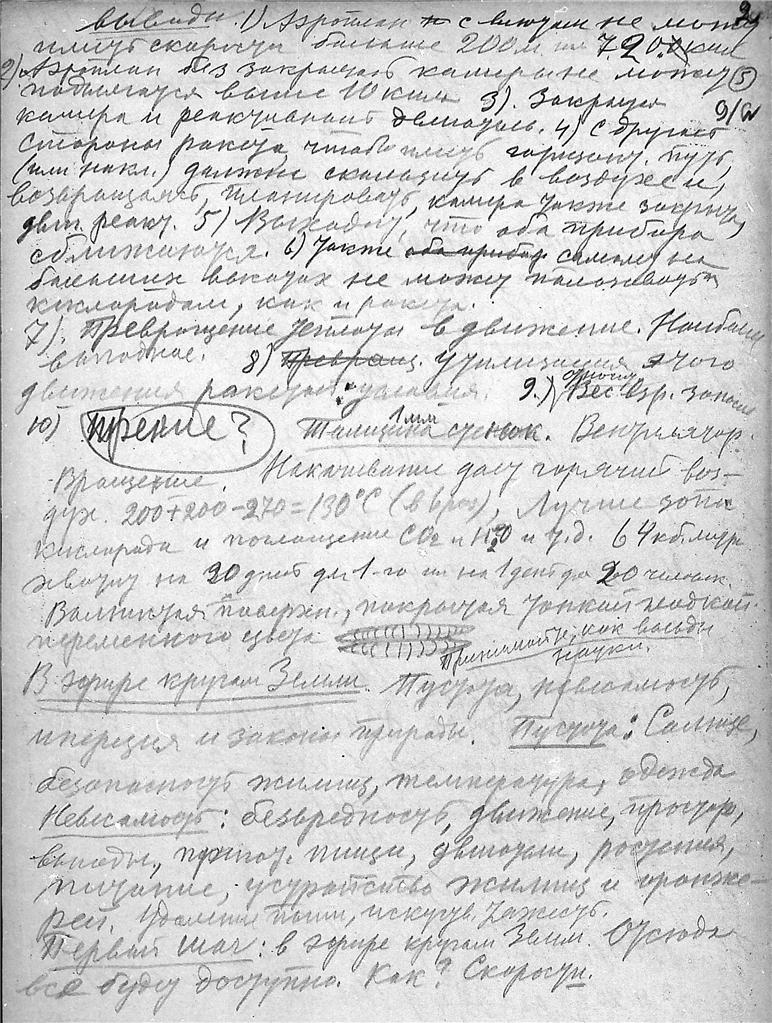 Выводы. 1) Аэроплан с винтом не может
иметь скорости больше 200 м или 720 км
2) Аэроплан без закрытой камеры не может
подыматься выше 10 килм. 3). Закрытая
камера и реактивный двигатель. 4) С другой
стороны ракета, чтобы иметь горизонт. путь,
(или накл.) должна скользить в воздухе и,
возвращаясь, планировать, камера также закрыта,
двиг. реакт. 5) Выходит, что оба прибора
сближаются. 6) Также самолет на
больших высотах не может пользоваться
кислородом, как и ракета.
7). Превращение теплоты в движение. Наиболее
выгодное. 8) Превращ. утилизация этого
движения ракетой: условия. 9.) Вес взр. запаса
10) Трение? Толщина 1 мм стенок. Вентилятор.
Вращение. Накачивание даст горячий воз-
дух. 200+200-270=130°C (в 6 раз), Лучше запас
кислорода и поглощение CO2 и H2O и т.д. 64
на 20 дней для 1-го или на 1 день для 20 человек.
Волнистая поверхн., покрытая тонкой
переменного цвета
Принимайте, как выводы
науки.
В эфире кругом Земли. Пустота, невесомость,
инерция и законы природы. Пустота: Солнце,
безопасность жилищ, температура, одежда
Невесомость: безвредность, движение, простор,
выгоды, пригот. пищи, двигатели, растения,
питание, устройство жилищ и оранже-
рей. Удаление пыли, искусств. тяжесть.
Первый шаг: в эфире кругом Земли. Отсюда
все будет доступно. Как? Скорости.